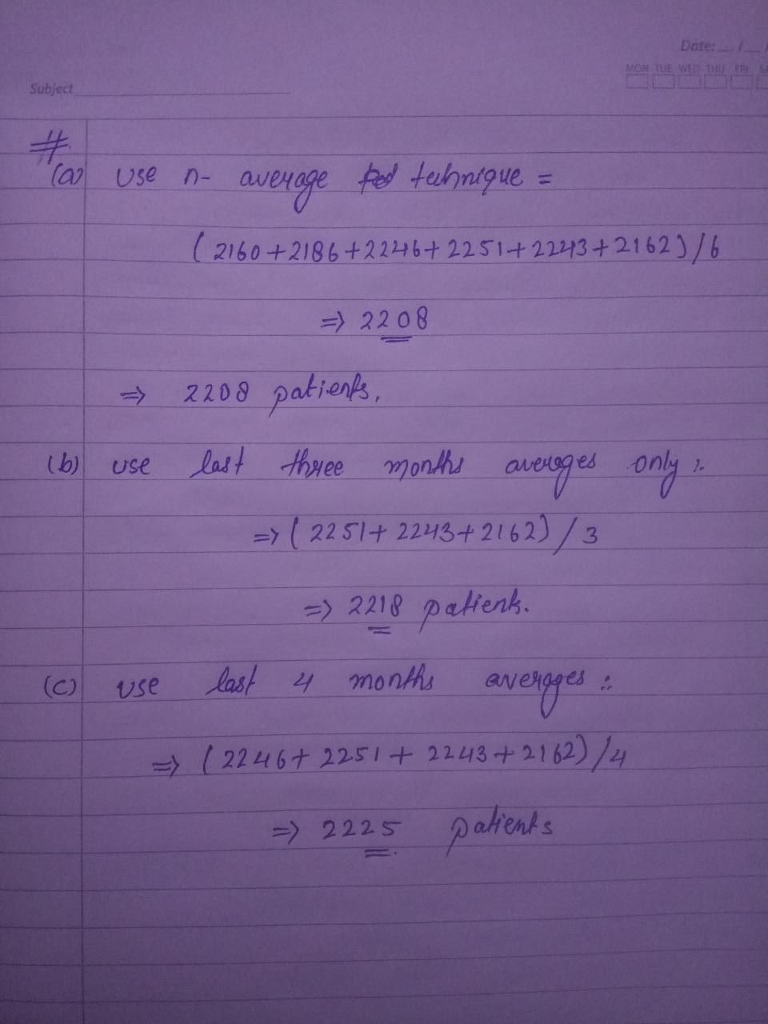 Date: __/__/
MON TUE WED THU FRI SA
Subject
#
(a) use n- average technique =
(2160+2186+2246+2251+2243+2162)/6
=> 2208
=> 2208 patients.
(b) use last three months averages only :.
=> (2251+2243+2162)/3
=> 2218 patients.
(c) use last 4 months averages ::
=> (2246+2251+2243+2162)/4
=> 2225 patients